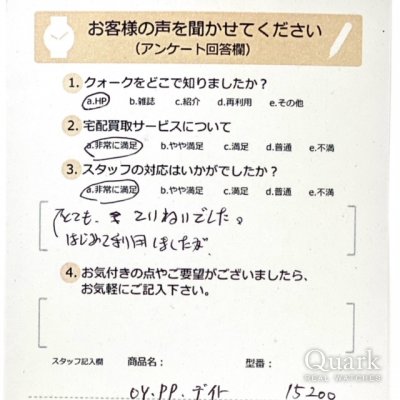 お客様の声を聞かせてください
(アンケート回答欄)
1. クォークをどこで知りましたか?
a.HP b.雑誌 c.紹介 d.再利用 e.その他
2. 宅配買取サービスについて
a.非常に満足 b.やや満足 c.満足 d.普通 e.不満
3. スタッフの対応はいかがでしたか?
a.非常に満足 b.やや満足 c.満足 d.普通 e.不満
とても、ていねいでした。
はじめて利用しましたが
4. お気付きの点やご要望がございましたら、
お気軽にご記入下さい。
スタッフ記入欄 商品名: 型番:
OY.PP.デイト 15200
Quark
REAL WATCHES